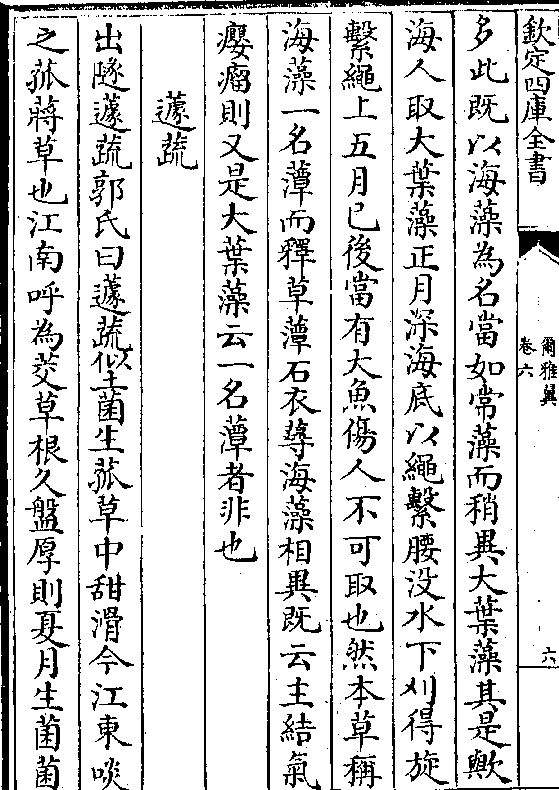 欽定四庫全書
爾雅翼
卷六
六
多此既以海藻為名當如常藻而稍異大葉藻其是歟
海人取大葉藻正月深海底以繩繫腰没水下刈得旋
繫繩上五月已後當有大魚傷人不可取也然本草稱
海藻一名薚而釋草薚石衣䔞海藻相異既云主結氣
癭瘤則又是大葉藻云一名薚者非也
蘧蔬
出隧蘧蔬郭氏曰蘧蔬似土菌生菰草中甜滑今江東啖
之菰蔣草也江南呼為茭草根久盤厚則夏月生菌菌